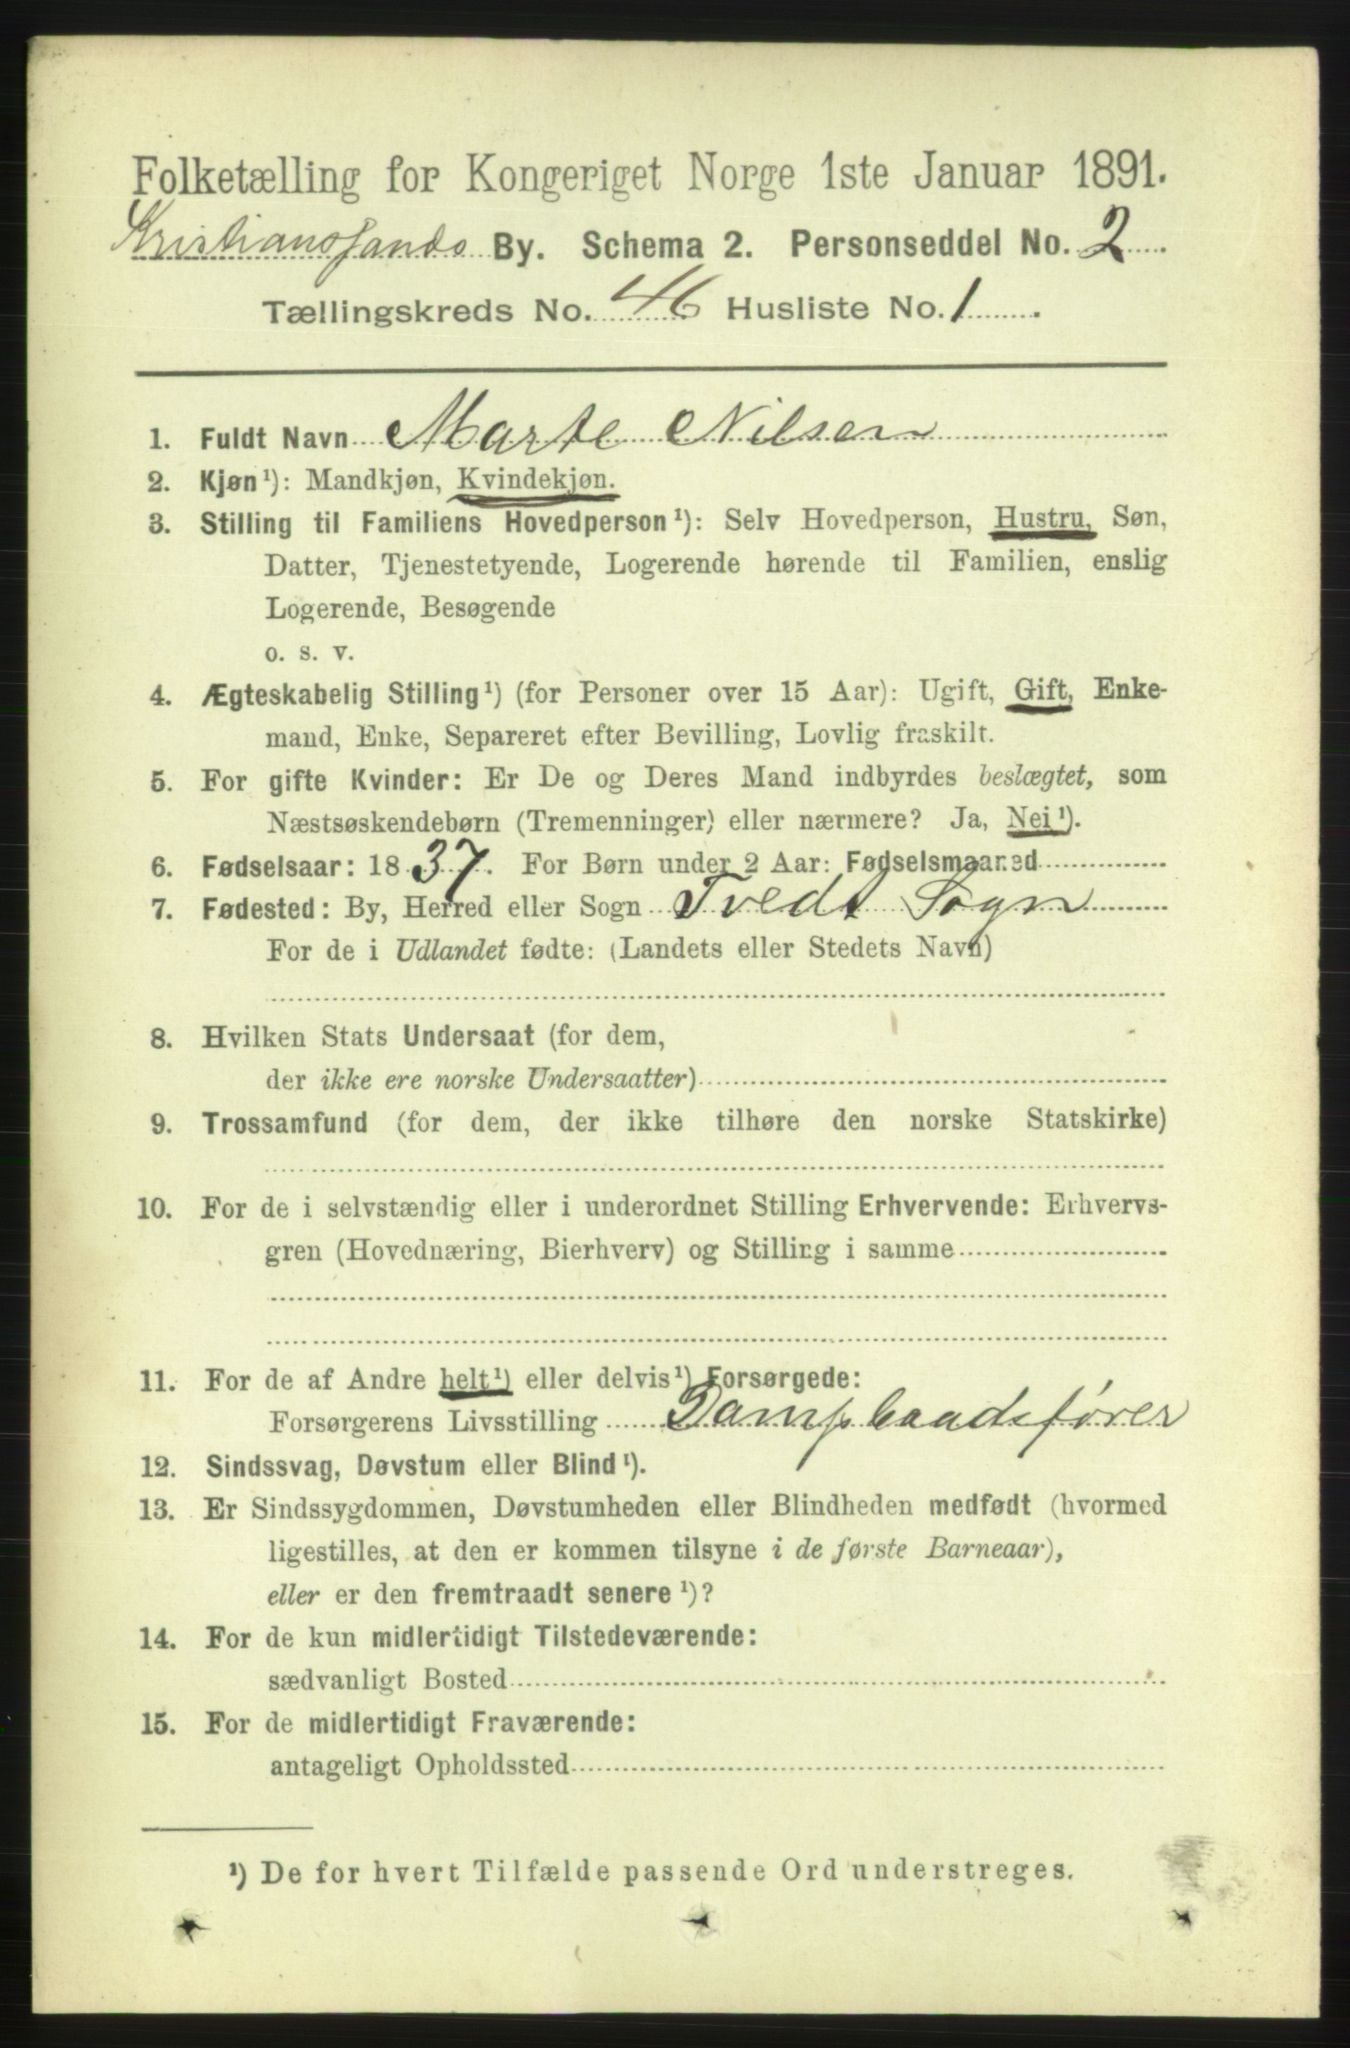 Folketælling for Kongeriget Norge 1ste Januar 1891.
Kristianssands By. Schema 2. Personseddel No. 2
Tællingskreds No. 46 Husliste No. 1
1. Fuldt Navn Marte Nilsen
2. Kjøn¹): Mandkjøn, Kvindekjøn.
3. Stilling til Familiens Hovedperson¹): Selv Hovedperson, Hustru, Søn,
Datter, Tjenestetyende, Logerende hørende til Familien, enslig
Logerende, Besøgende
o. s. v.
4. Ægteskabelig Stilling¹) (for Personer over 15 Aar): Ugift, Gift, Enke-
mand, Enke, Separeret efter Bevilling, Lovlig fraskilt.
5. For gifte Kvinder: Er De og Deres Mand indbyrdes beslægtet, som
Næstsøskendebørn (Tremenninger) eller nærmere? Ja, Nei¹).
6. Fødselsaar: 1837. For Børn under 2 Aar: Fødselsmaaned
7. Fødested: By, Herred eller Sogn Tvedt Sogn
For de i Udlandet fødte: (Landets eller Stedets Navn)
8. Hvilken Stats Undersaat (for dem,
der ikke ere norske Undersaatter)
9. Trossamfund (for dem, der ikke tilhøre den norske Statskirke)
10. For de i selvstændig eller i underordnet Stilling Erhvervende: Erhvervs-
gren (Hovednæring, Bierhverv) og Stilling i samme
11. For de af Andre helt¹) eller delvis¹) Forsørgede:
Forsørgerens Livsstilling Dampbaadsfører
12. Sindssvag, Døvstum eller Blind¹).
13. Er Sindssygdommen, Døvstumheden eller Blindheden medfødt (hvormed
ligestilles, at den er kommen tilsyne i de første Barneaar),
eller er den fremtraadt senere¹)?
14. For de kun midlertidigt Tilstedeværende:
sædvanligt Bosted
15. For de midlertidigt Fraværende:
antageligt Opholdssted
¹) De for hvert Tilfælde passende Ord understreges.